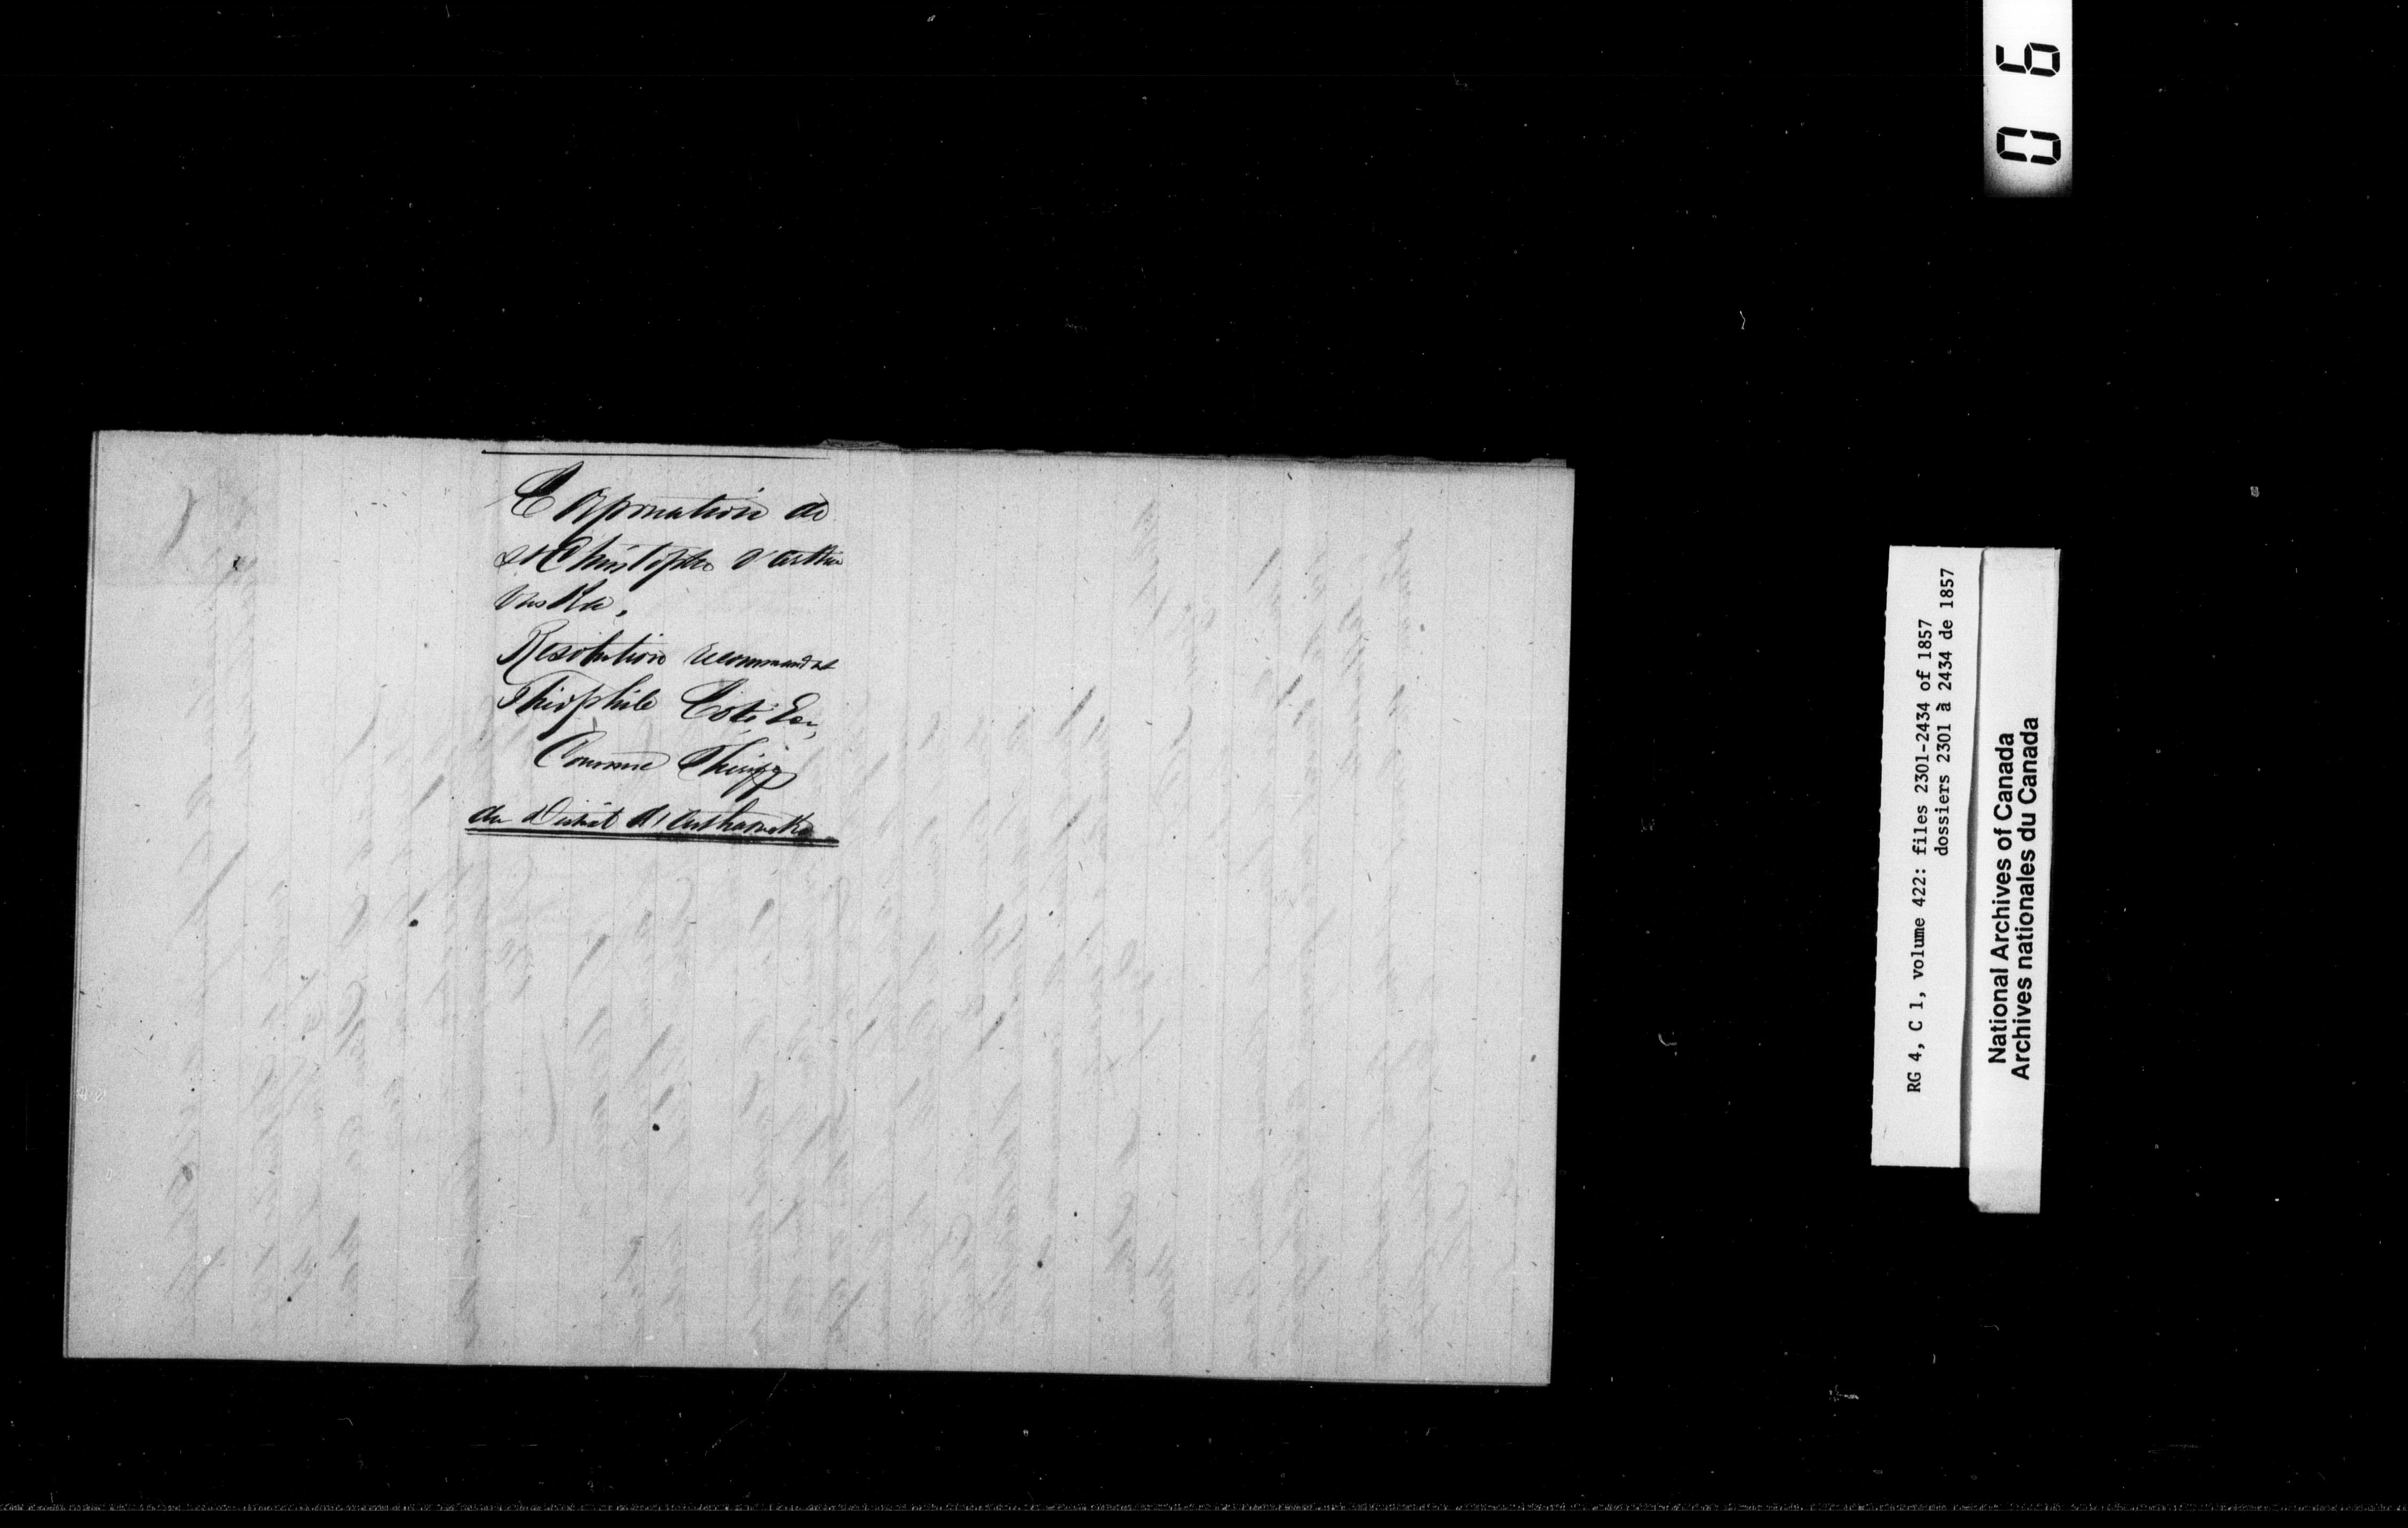 Corporation de
St Christophe d'Artha
baska,
Resolution recommandat
Théophile Coté Ecr,
Comme Shériff
du District d'Arthabaska
06
RG 4, C 1, volume 422: files 2301-2434 of 1857
dossiers 2301 à 2434 de 1857
National Archives of Canada
Archives nationales du Canada